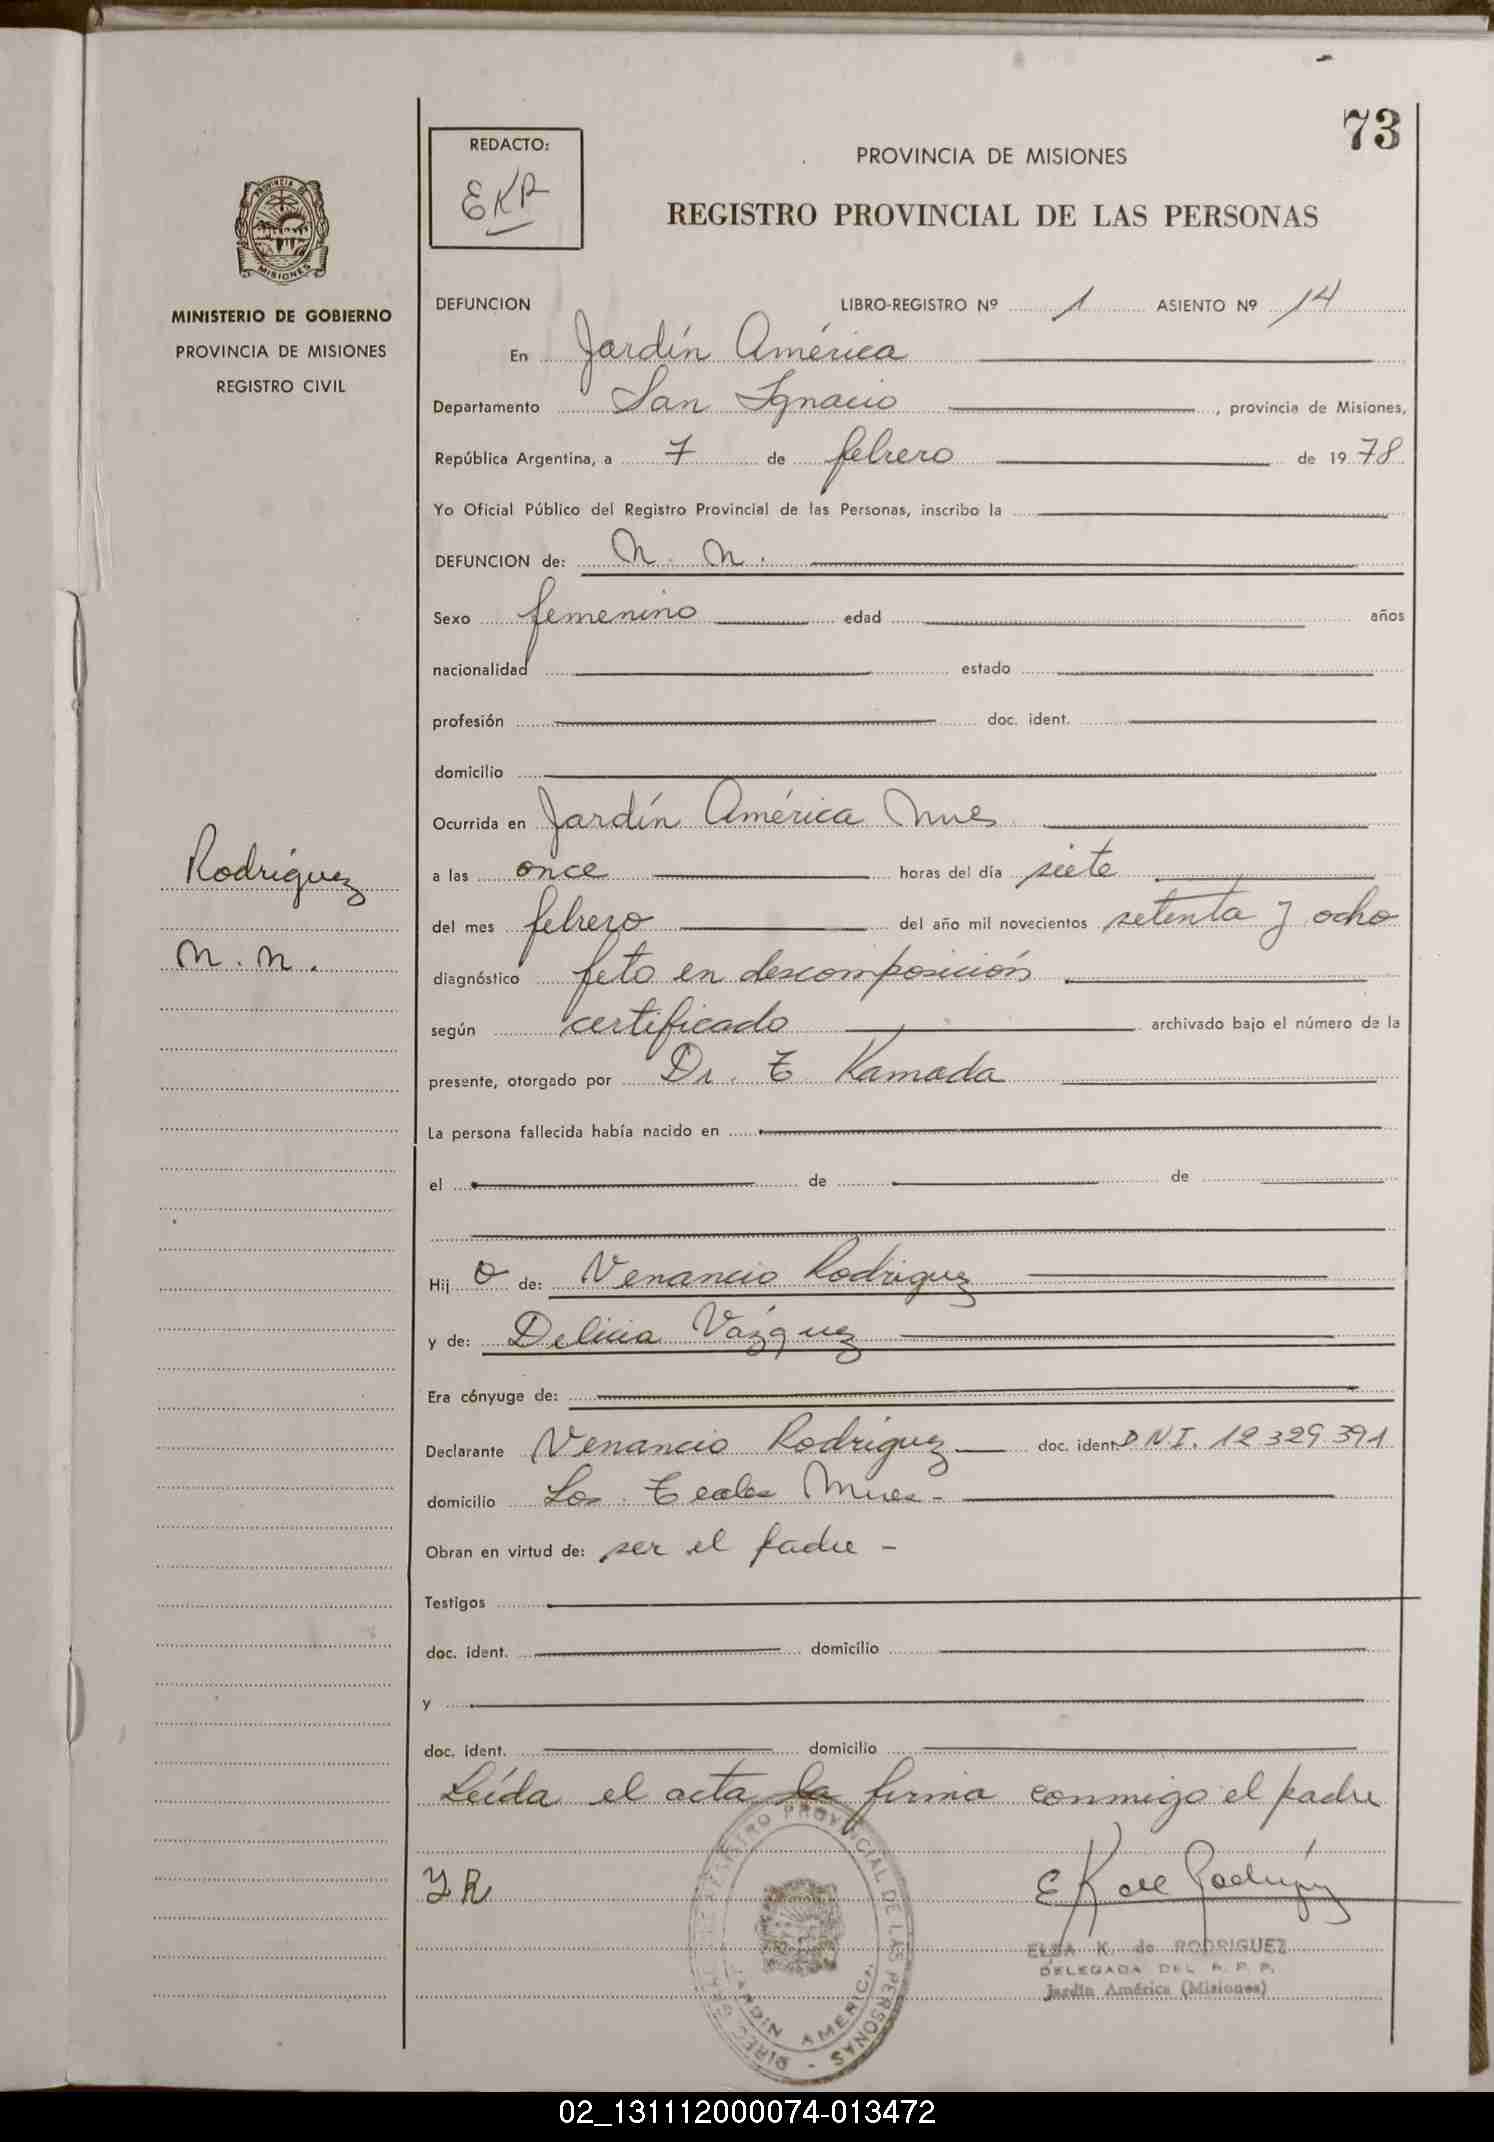 73
REDACTO:
EKR
PROVINCIA DE MISIONES
REGISTRO PROVINCIAL DE LAS PERSONAS
PROVINCIA DE
MISIONES
MINISTERIO DE GOBIERNO
PROVINCIA DE MISIONES
REGISTRO CIVIL
DEFUNCION LIBRO-REGISTRO Nº 1 ASIENTO Nº 14
En Jardín América
Departamento San Ignacio, provincia de Misiones,
República Argentina, a 7 de febrero de 1978
Yo Oficial Público del Registro Provincial de las Personas, inscribo la
DEFUNCION de: N. N.
Sexo femenino edad años
nacionalidad estado
profesión doc. ident.
domicilio
Ocurrida en Jardín América Mnes
Rodríguez
N. N.
a las once horas del día siete
del mes febrero del año mil novecientos setenta y ocho
diagnóstico feto en descomposición
según certificado archivado bajo el número de la
presente, otorgado por Dr. T Kamada
La persona fallecida había nacido en
el de de
Hijo de: Venancio Rodriguez
y de: Delicia Vázquez
Era cónyuge de:
Declarante Venancio Rodríguez doc. ident D N I. 12329391
domicilio Los Teales Mnes -
Obran en virtud de: ser el padre -
Testigos
doc. ident. domicilio
y
doc. ident. domicilio
Leída el acta la firma conmigo el padre
E K de Rodríguez
ELSA K. de RODRIGUEZ
DELEGADA DEL R. P. P.
Jardín América (Misiones)
REGISTRO PROVINCIAL DE LAS PERSONAS
JARDIN AMERICA
02_131112000074-013472